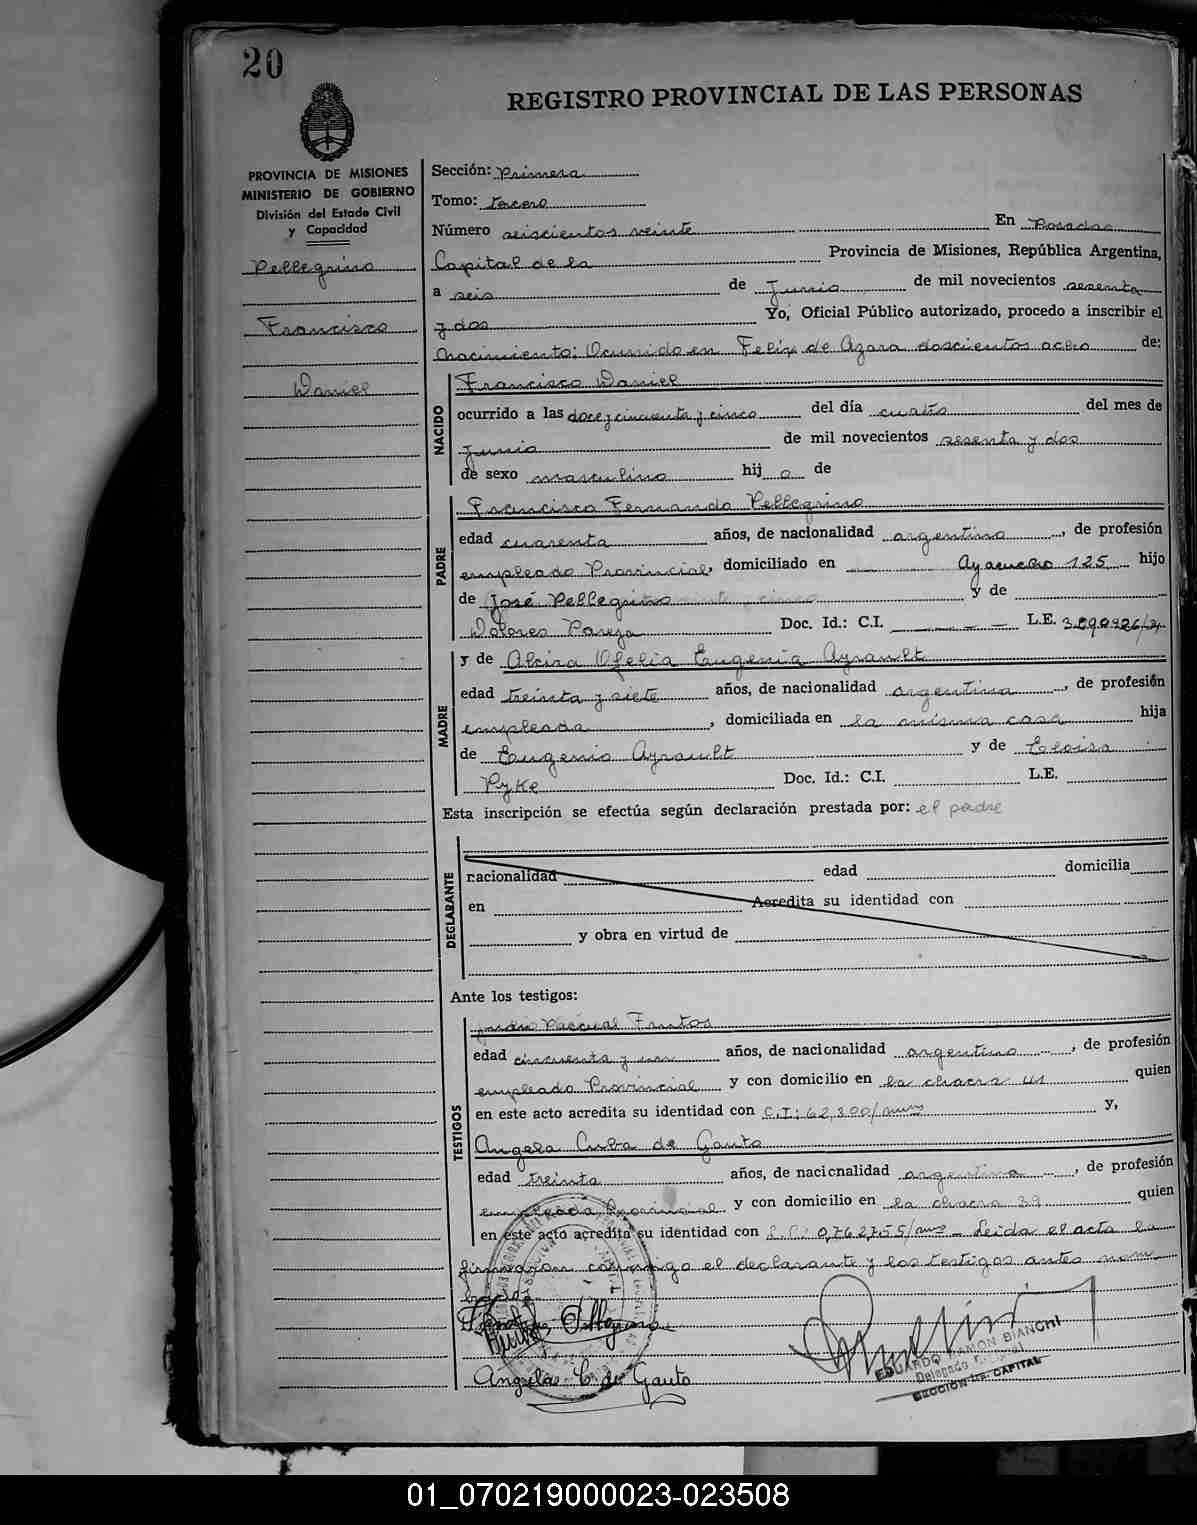 20
REGISTRO PROVINCIAL DE LAS PERSONAS
PROVINCIA DE MISIONES
MINISTERIO DE GOBIERNO
División del Estado Civil
y Capacidad
Pellegrino
Francisco
Daniel
Sección: Primera
Tomo: tercero
Número seiscientos veinte En Posadas
Capital de la Provincia de Misiones, República Argentina,
a seis de Junio de mil novecientos sesenta
y dos Yo, Oficial Público autorizado, procedo a inscribir el
Nacimiento: Ocurrido en Feliz de Azara doscientos ocho de:
NACIDO
Francisco Daniel
ocurrido a las doce y cincuenta y cinco del día cuatro del mes de
Junio de mil novecientos sesenta y dos
de sexo masculino hij o de
PADRE
Francisco Fernando Pellegrino
edad cuarenta años, de nacionalidad argentino, de profesión
empleado Provincial, domiciliado en Ayacucho 125 hijo
de José Pellegrino y de
Dolores Pareja Doc. Id.: C.I. L.E.
MADRE
y de Alcira Ofelia Eugenia Ayrault
edad treinta y siete años, de nacionalidad argentina, de profesión
empleada, domiciliada en la misma casa hija
de Eugenio Ayrault y de Eloisa
Pyke Doc. Id.: C.I. L.E.
Esta inscripción se efectúa según declaración prestada por: el padre
DECLARANTE
nacionalidad edad domicilia
en Acredita su identidad con
y obra en virtud de
Ante los testigos:
TESTIGOS
Pascual Frutos
edad cincuenta y un años, de nacionalidad argentino, de profesión
empleado Provincial y con domicilio en la chacra quien
en este acto acredita su identidad con C.I: 62,300/ y,
Angela Cuba de Gauto
edad treinta años, de nacionalidad argentina, de profesión
empleada Provincial y con domicilio en la chacra 39 quien
en este acto acredita su identidad con L.C: 0,762755/ Leida el acta la
firmaron conmigo el declarante y los testigos antes nom
brados.
Angela C de Gauto
EDUARDO RAMON BIANCHI
Delegado
SECCION 1ra. CAPITAL
01_070219000023-023508